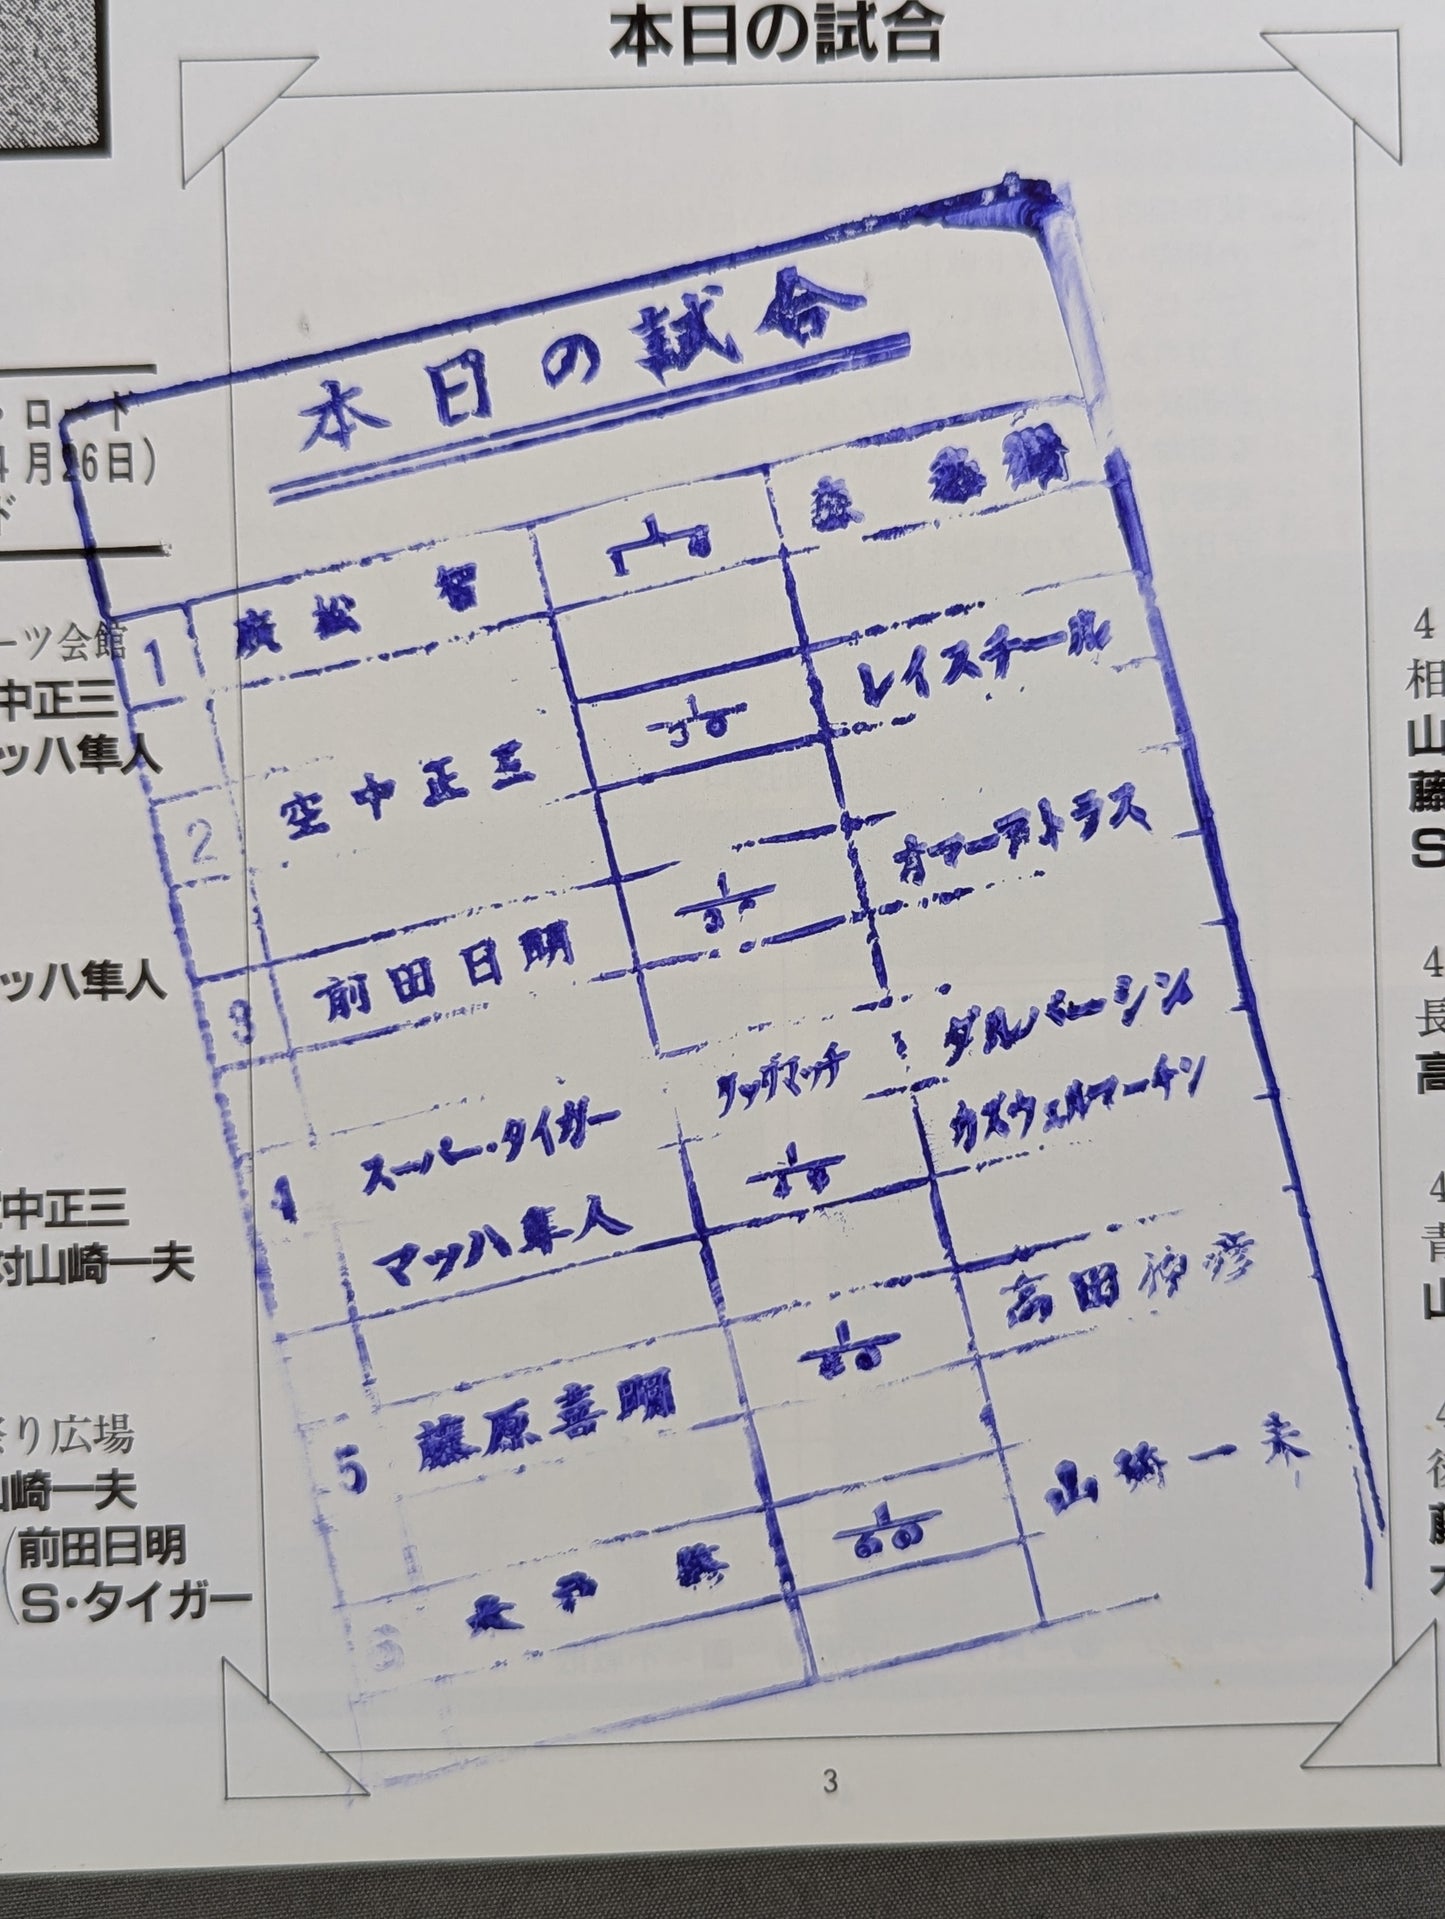 本日の試合
・ロード
4月26日)
ド
ーツ会館
中正三
ッハ隼人
ッハ隼人
中正三
対山崎一夫
祭り広場
山崎一夫
(前田日明
(S・タイガー
本日の試合
1 廣松 智 1 森
2 空中正三 1/30 レイスチール
3 前田日明 1/30 オマーアトラス
4 スーパー・タイガー タッグマッチ ダルバーシン
マッハ隼人 1 カズウェルマーチン
5 藤原喜明 1 高田伸彦
6 木戸 修 1/60 山崎一夫
4
相
山
藤
S
4
長
高
4
青
山
3